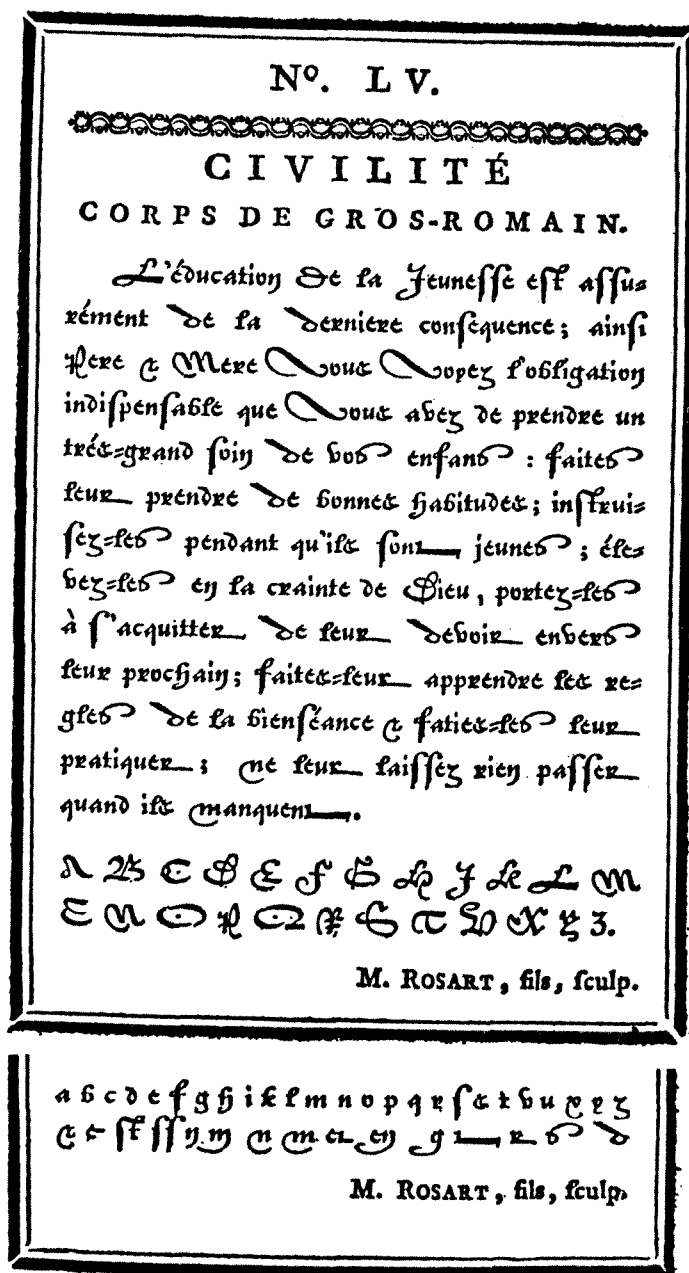 Nº. LV.
CIVILITÉ
CORPS DE GROS-ROMAIN.
L'éducation De la Jeunesse est assu=
rément de la derniere consequence; ainsi
Pere & Mere Vous Voyez l'obligation
indispensable que Vous avez de prendre un
trés=grand soin de vos enfans : faites
leur prendre de bonnes habitudes; instrui=
sez=les pendant qu'ils sont jeunes ; éle=
vez=les en la crainte de Dieu, portez=les
à s'acquitter de leur devoir envers
leur prochain; faites=leur apprendre les re=
gles de la bienséance & faties=les leur
pratiquer ; ne leur laissez rien passer
quand ils manquent.
A B C D E F G H J K L M
E N O P Q R S T V X Y Z.
M. ROSART, fils, sculp.
a b c d e f g h i k l m n o p q r s s t v u x y z
& e st ss n m n m er en g t r s s d
M. ROSART, fils, sculp.